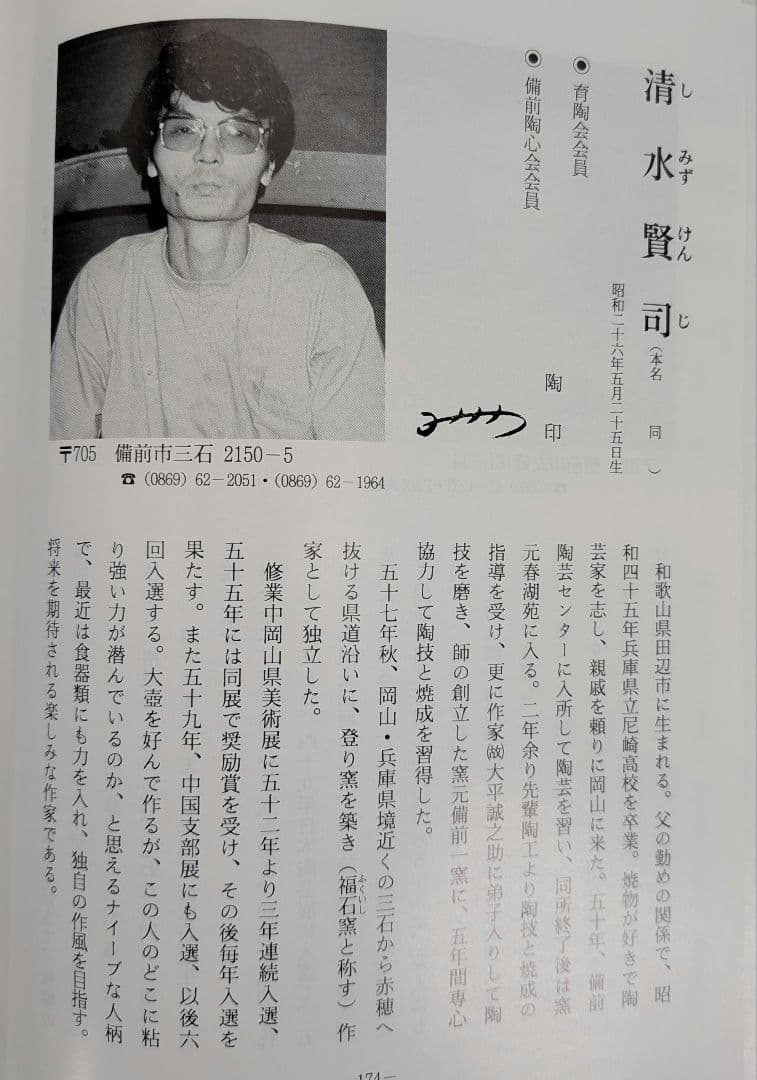 清水賢司
しみずけんじ
（本名　同　）
昭和二十六年五月二十五日生
◉育陶会会員
◉備前陶心会会員
陶印
〒705　備前市三石 2150－5
☎（0869）62－2051・（0869）62－1964
和歌山県田辺市に生まれる。父の勤めの関係で、昭
和四十五年兵庫県立尼崎高校を卒業。焼物が好きで陶
芸家を志し、親戚を頼りに岡山に来た。五十年、備前
陶芸センターに入所して陶芸を習い、同所終了後は窯
元春湖苑に入る。二年余り先輩陶工より陶技と焼成の
指導を受け、更に作家㈲大平誠之助に弟子入りして陶
技を磨き、師の創立した窯元備前一窯に、五年間専心
協力して陶技と焼成を習得した。
五十七年秋、岡山・兵庫県境近くの三石から赤穂へ
抜ける県道沿いに、登り窯を築き（福石窯と称す）作
ふくいし
家として独立した。
修業中岡山県美術展に五十二年より三年連続入選、
五十五年には同展で奨励賞を受け、その後毎年入選を
果たす。また五十九年、中国支部展にも入選、以後六
回入選する。大壺を好んで作るが、この人のどこに粘
り強い力が潜んでいるのか、と思えるナイーブな人柄
で、最近は食器類にも力を入れ、独自の作風を目指す。
将来を期待される楽しみな作家である。
174－